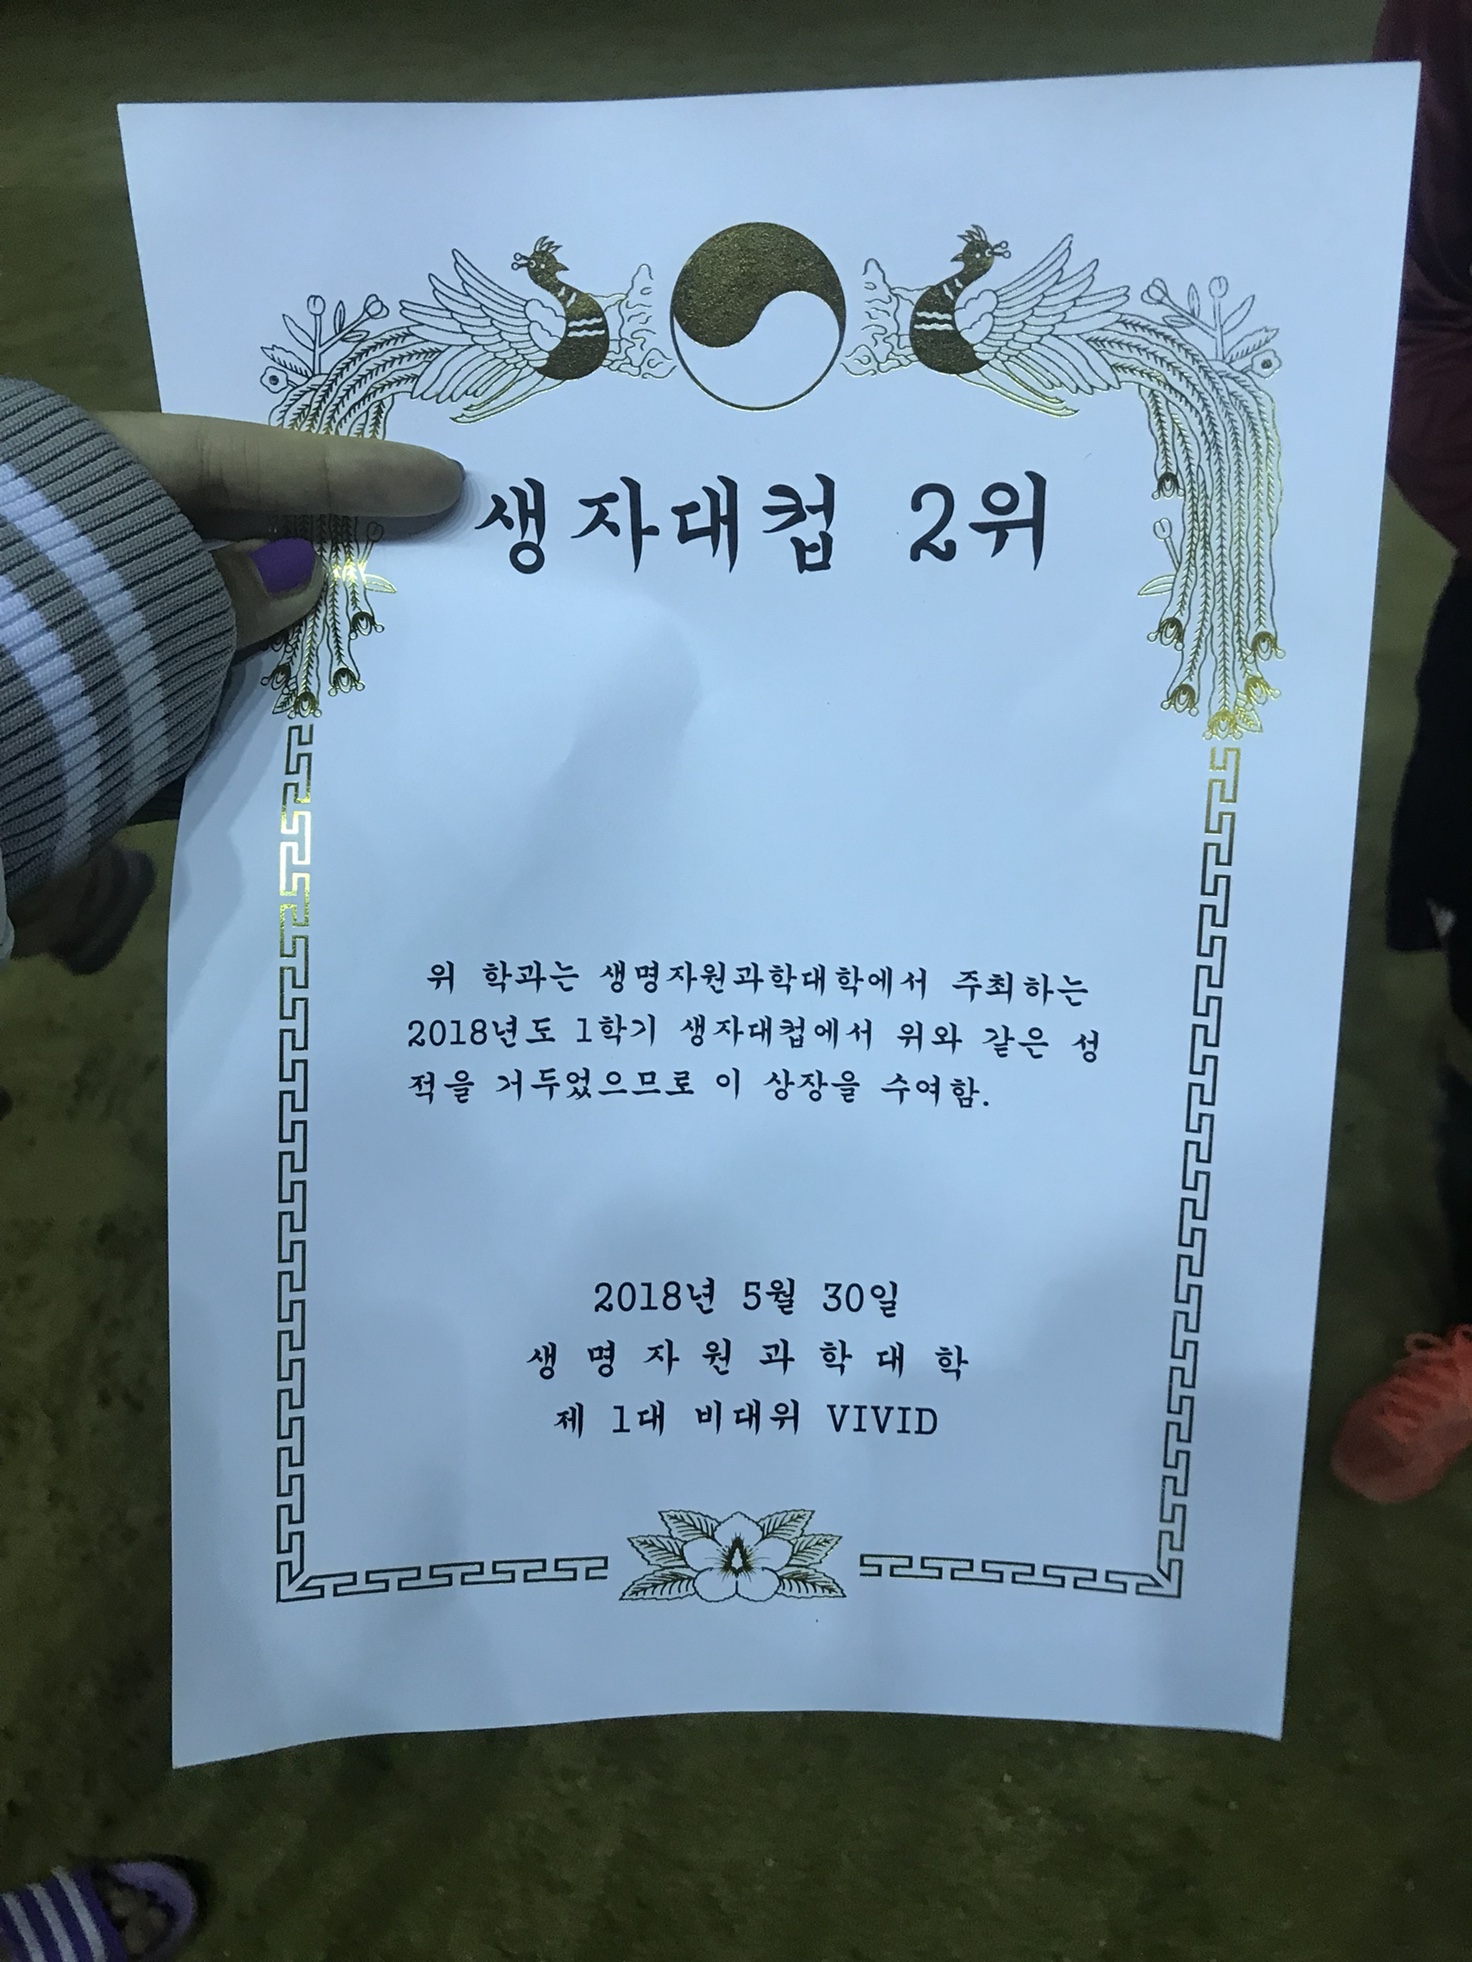 생자대컵 2위
위 학과는 생명자원과학대학에서 주최하는
2018년도 1학기 생자대컵에서 위와 같은 성
적을 거두었으므로 이 상장을 수여함.
2018년 5월 30일
생 명 자 원 과 학 대 학
제 1대 비대위 VIVID